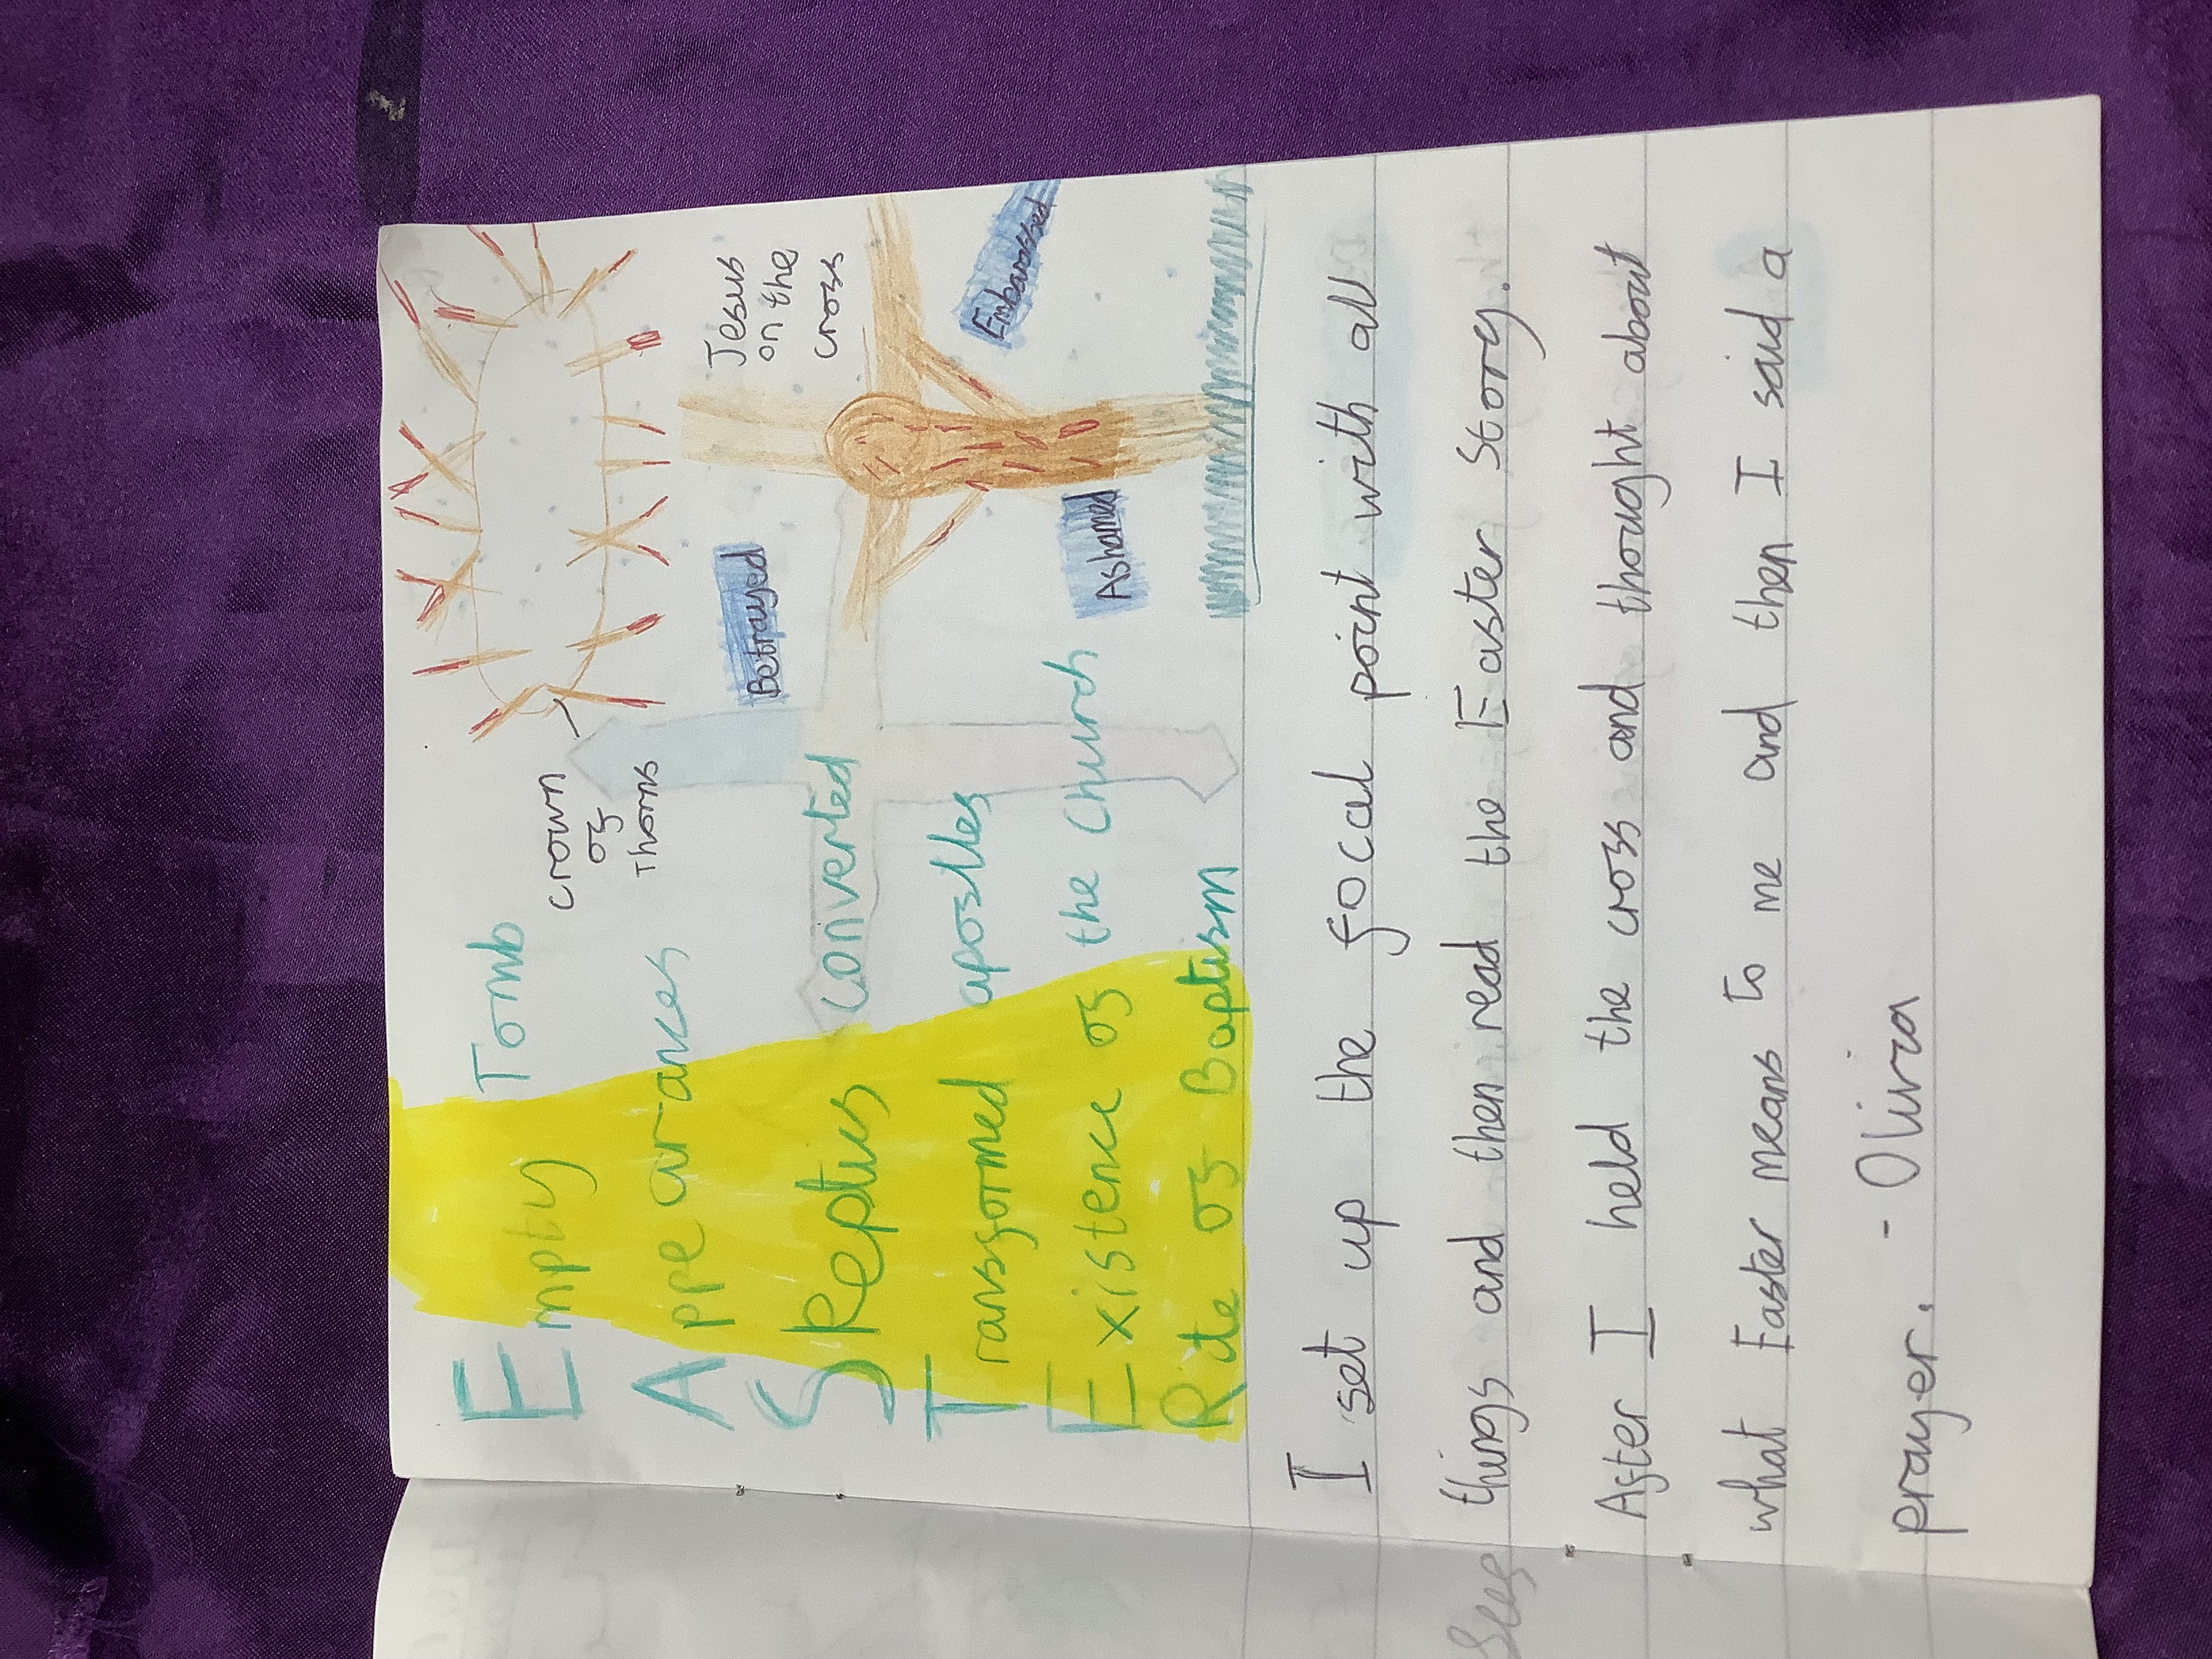 Empty Tomb
Appearances
Skeptius Converted
Transformed apostles
Existence of the Church
Rite of Baptism
crown
of
Thorns
Jesus
on the
cross
Betrayed
Embarossed
Ashamed
I set up the focal point with all
things and then read the Easter Story.
After I held the cross and thought about
what Easter means to me and then I said a
prayer. - Olivia